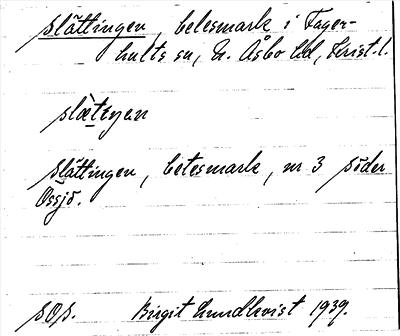 Slättingen, betesmark i Fager-
hults sn, N. Åsbo hd, Krist. l.
slæ̀tıŋen
Slättingen, betesmark, nr 3 Söder
Össjö.
SOS. Birgit Lundkvist 1939.